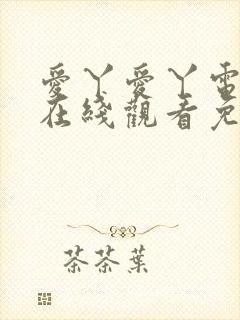 愛丫愛丫電
在綫觀看免
茶茶葉